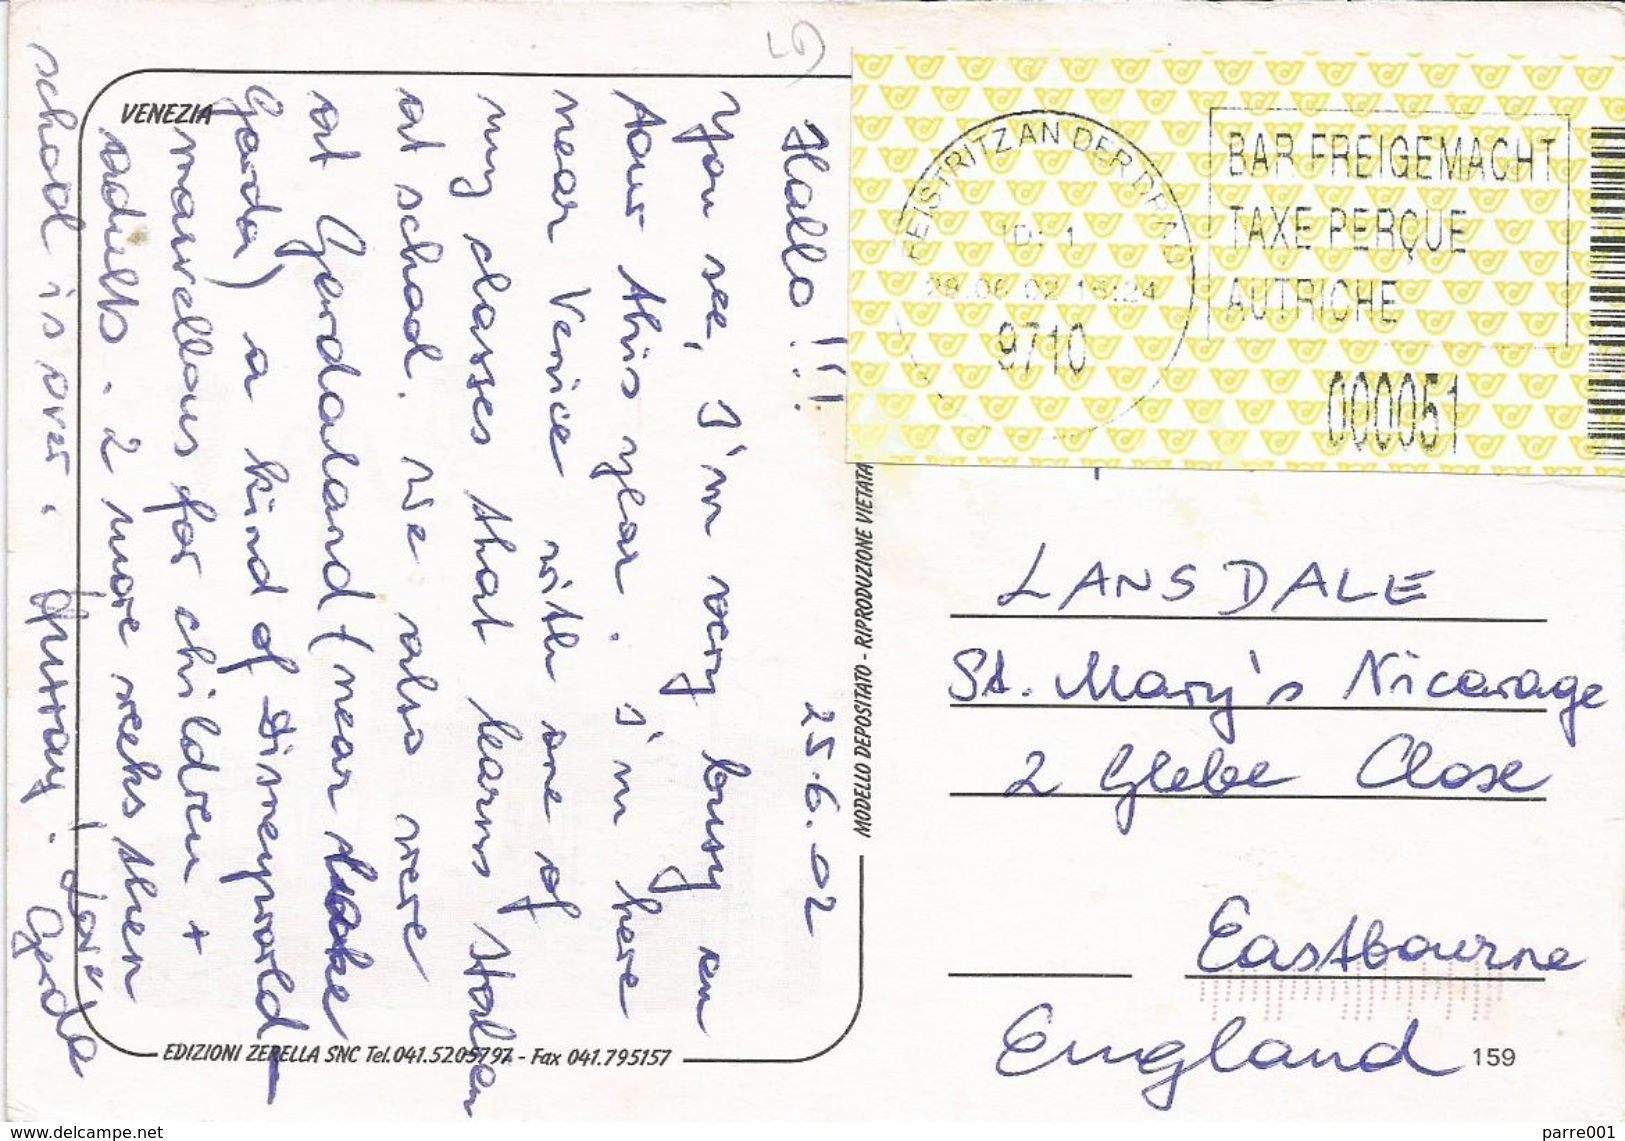 VENEZIA
Hallo!!! 25.6.02
You see, I'm very busy on
tour this year. I'm here
near Venice with one of
my classes that learns Italien
at school. We also were
at Gardaland (near Lake
Garda) a kind of Disneyworld
marvellous for children +
adults. 2 more weeks then
school is over. Hurray!
Love
Gerda
EDIZIONI ZERELLA SNC Tel. 041.5205797 - Fax 041.795157
MODELLO DEPOSITATO - RIPRODUZIONE VIETATA
FEISTRITZ AN DER DRAU
28.06.02
9710
BAR FREIGEMACHT
TAXE PERÇUE
AUTRICHE
000051
LANSDALE
St. Mary's Vicarage
2 Glebe Close
Eastbourne
England
159
www.delcampe.net
parre001